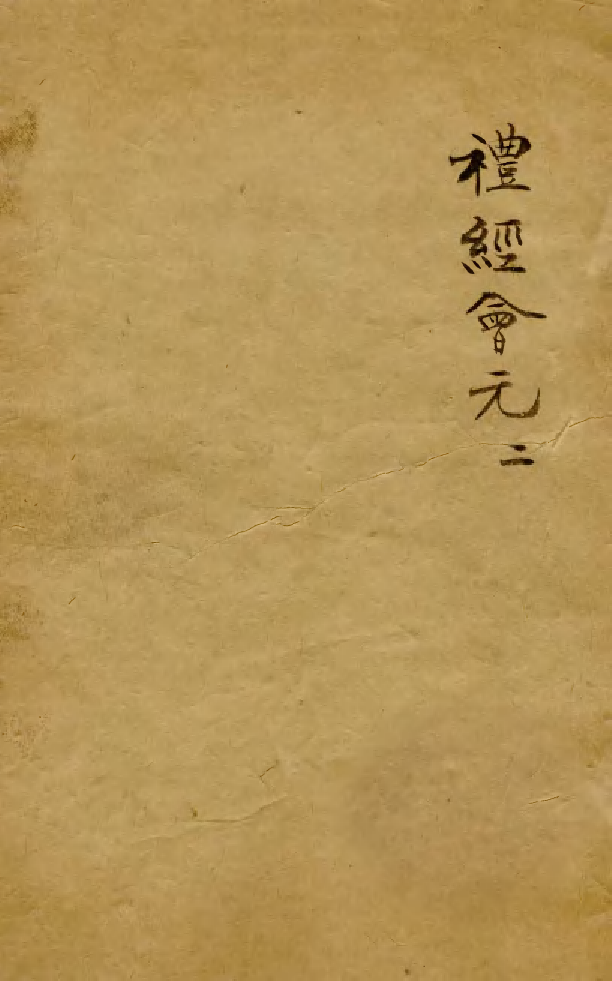 禮經會元二